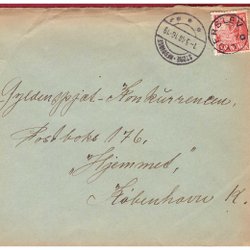 Gyldenspjæt-Konkurrencen,
Postboks 176,
"Hjemmet,"
København K.